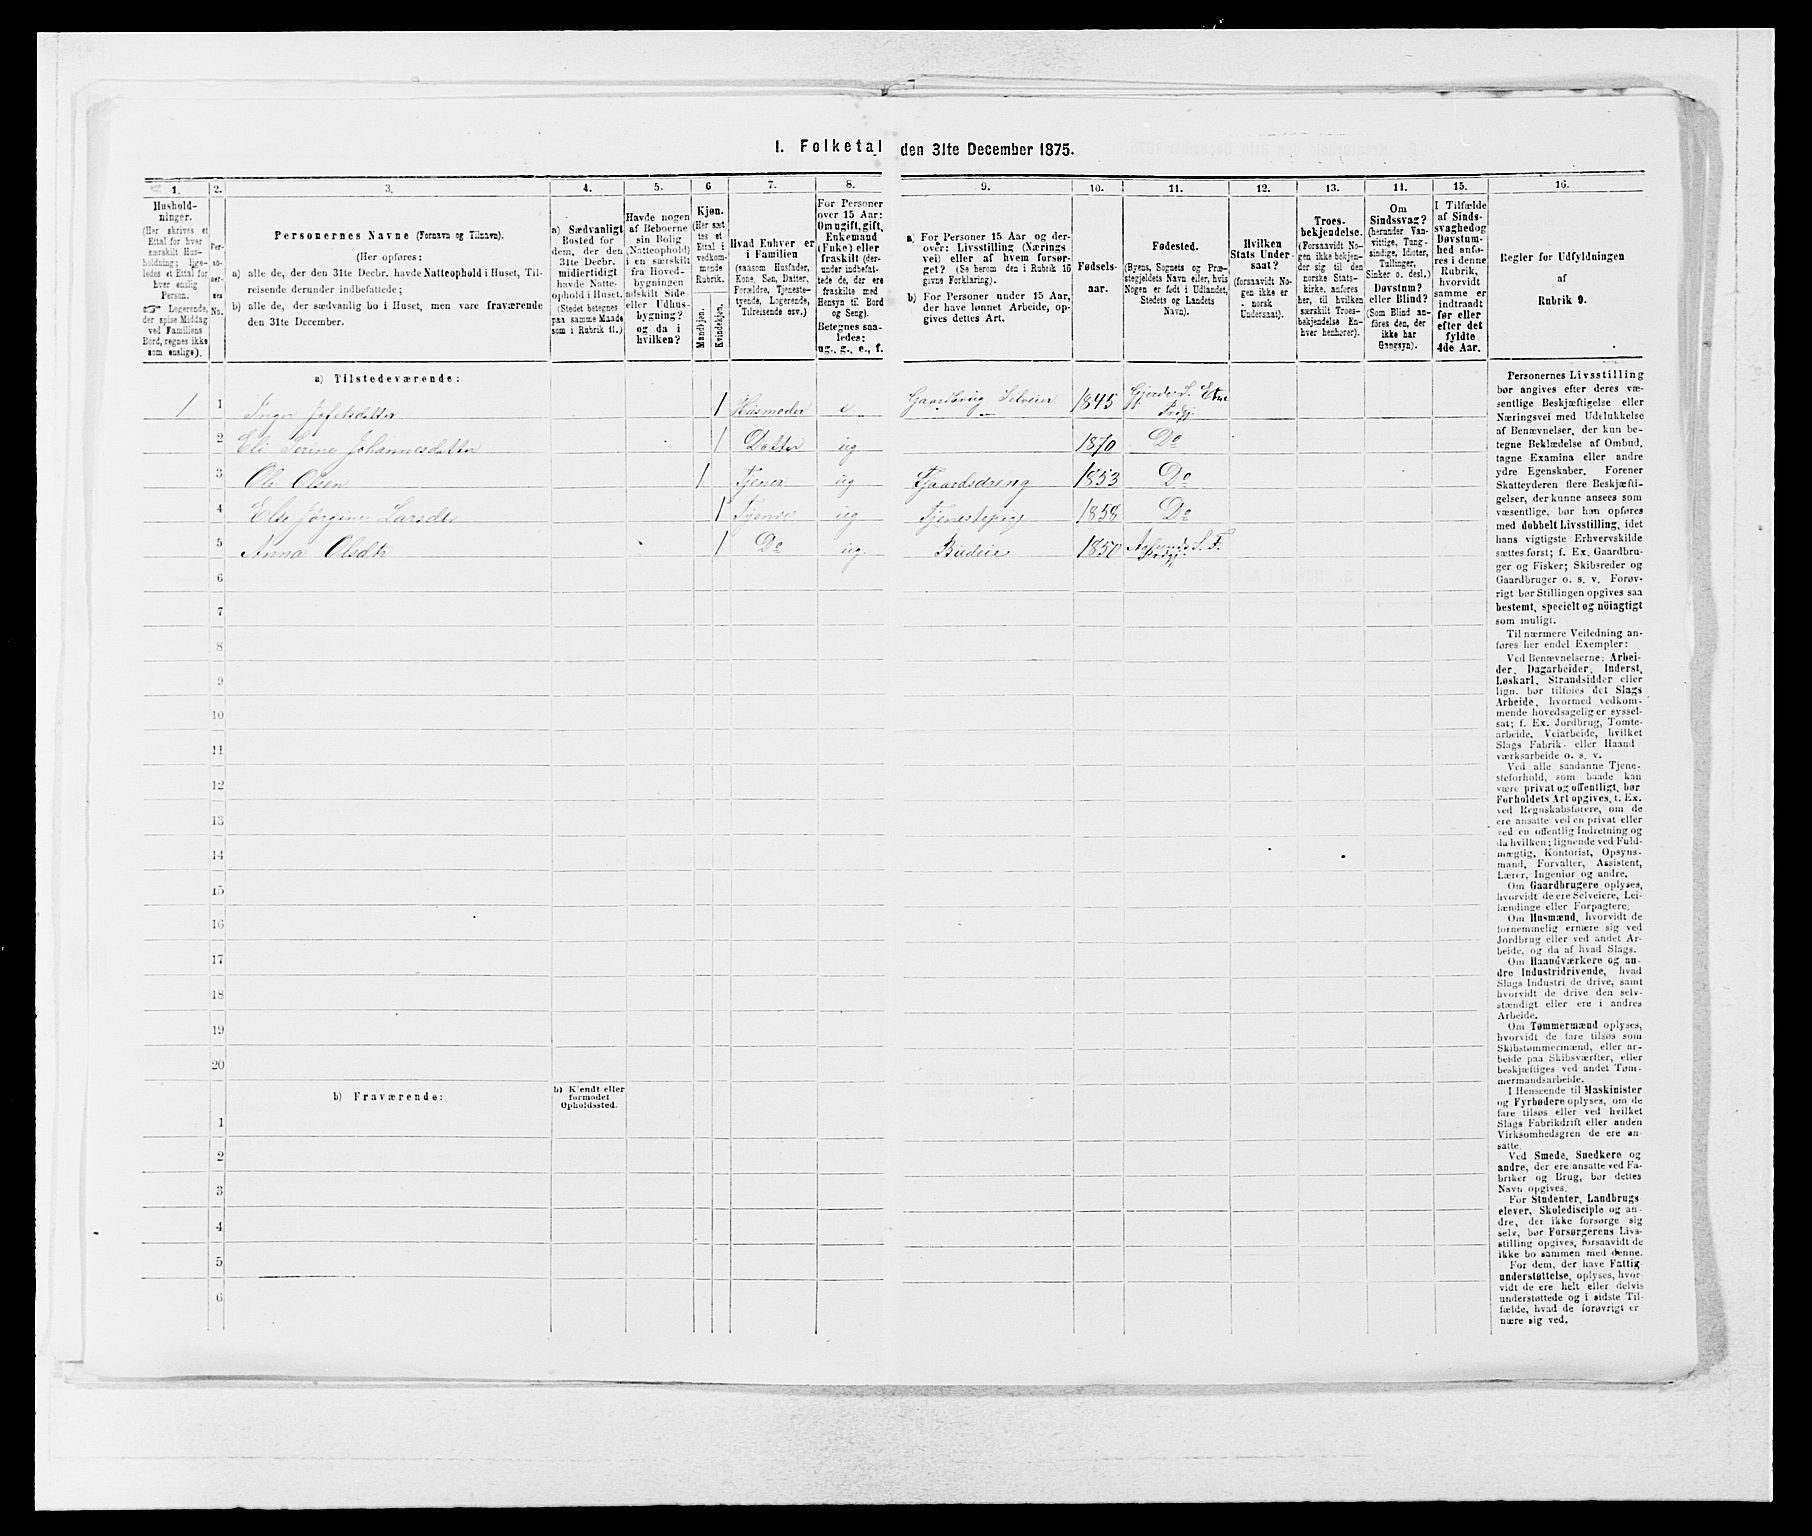 1. Folketal den 31te December 1875.
1. 2. 3. 4. 5. 6 7. 8. 9. 10. 11. 12. 13. 14. 15. 16.
Hushold-
ninger.
(Her skrives et
Ettal for hver
særskilt Hus-
holdning; lige-
ledes et Ettal for
hver enslig
Person.
☞ Logerende,
der spise Middag
ved Familiens
Bord, regnes ikke
som enslige).
Per-
so-
ner-
nes
No.
Personernes Navne (Fornavn og Tilnavn).
(Her opføres:
a) alle de, der den 31te Decbr. havde Natteophold i Huset, Til-
reisende derunder indbefattede;
b) alle de, der sædvanlig bo i Huset, men vare fraværende
den 31te December.
a) Sædvanligt
Bosted for
dem, der den
31te Decbr.
midlertidigt
havde Natte-
ophold i Huset.
(Stedet betegnes
paa samme Maade
som i Rubrik 11.)
Havde nogen
af Beboerne
sin Bolig
(Natteophold)
i en særskilt
fra Hoved-
bygningen
adskilt Side
eller Udhus-
bygning?
og da i
hvilken?
Kjøn.
(Her sæt
tes et
Ettal i
vedkom-
mende
Rubrik.
Mandkjøn.
Kvindekjøn.
Hvad Enhver er
i Familien
(saasom Husfader,
Kone, Søn, Datter,
Forældre, Tjeneste-
tyende, Logerende,
Tilreisende osv.)
For Personer
over 15 Aar:
Om ugift, gift,
Enkemand
(Enke) eller
fraskilt (der-
under indbefat-
tede de, der ere
fraskilte med
Hensyn til Bord
og Seng).
Betegnes saa-
ledes:
ug., g., e., f.
a) For Personer 15 Aar og der-
over: Livsstilling (Nærings
vei) eller af hvem forsør-
get? (Se herom den i Rubrik 16
givne Forklaring).
b) For Personer under 15 Aar,
der have lønnet Arbeide, op-
gives dettes Art.
Fødsels-
aar.
Fødested.
(Byens, Sognets og Præ-
stegjeldets Navn eller, hvis
Nogen er født i Udlandet,
Stedets og Landets
Navn).
Hvilken
Stats Under-
saat?
(forsaavidt No-
gen ikke er
norsk
Undersaat).
Troes-
bekjendelse.
(Forsaavidt No-
gen ikke bekjen-
der sig til den
norske Stats-
kirke, anføres
her, til hvilken
særskilt Troes-
bekjendelse En-
hver henhører).
Om
Sindssvag?
(herunder Van-
vittige, Tung-
sindige, Idioter,
Tullinger,
Sinker o. desl.)
Døvstum?
eller Blind?
(Som Blind an-
føres den, der
ikke har
Gangsyn).
I Tilfælde
af Sinds-
svaghed og
Døvstum-
hed anfø-
res i denne
Rubrik,
hvorvidt
samme er
indtraadt
før eller
efter det
fyldte
4de Aar.
Regler for Udfyldningen
af
Rubrik 9.
a) Tilstedeværende:
1 1 Inger Jofetsdatter 1 Husmoder e Gaardbrug Selveier 1845 Gjerde S. Etne Prdgj.
2 Eli Serine Johannesdatter 1 Datter ug 1870 Do
3 Ole Olsen 1 Tjener ug Gaardsdreng 1853 Do
4 Else Jørgine Larsdtr 1 Tjener ug Tjenestepige 1858 Do
5 Anna Olsdtr 1 Do ug. Budeie 1850 S. F. Prdgj.
6
7
8
9
10
11
12
13
14
15
16
17
18
19
20
b) Fraværende:
b) Kjendt eller
formodet
Opholdssted.
1
2
3
4
5
6
Personernes Livsstilling
bør angives efter deres væ-
sentlige Beskjæftigelse eller
Næringsvei med Udelukkelse
af Benævnelser, der kun be-
tegne Beklædelse af Ombud,
tagne Examina eller andre
ydre Egenskaber. Forener
Skatteyderen flere Beskjæfti-
gelser, der kunne ansees som
væsentlige, bør han opføres
med dobbelt Livsstilling, idet
hans vigtigste Erhvervskilde
sættes først; f. Ex. Gaardbru-
ger og Fisker; Skibsreder og
Gaardbruger o. s. v. Forøv-
rigt bør Stillingen opgives saa
bestemt, specielt og nöiagtigt
som muligt.
Til nærmere Veiledning an-
føres her endel Exempler:
Ved Benævnelserne: Arbei-
der, Dagarbeider, Inderst,
Løskarl, Strandsidder eller
lign. bør tilføies det Slags
Arbeide, hvormed vedkom-
mende hovedsagelig er syssel-
sat; f. Ex. Jordbrug, Tomte-
arbeide, Veiarbeide, hvilket
Slags Fabrik- eller Haand
værksarbeide o. s. v.
Ved alle saadanne Tjene-
steforhold, som baade kan
være privat og offentligt, bør
Forholdets Art opgives, t. Ex.
ved Regnskabsførere, om de
ere ansatte ved en privat eller
ved en offentlig Indretning og
da hvilken; lignende ved Fuld-
mægtig, Kontorist, Opsyns-
mand, Forvalter, Assistent,
Lærer, Ingeniør og andre.
Om Gaardbrugere oplyses,
hvorvidt de ere Selveiere, Lei-
lændinge eller Forpagtere.
Om Husmænd, hvorvidt de
fornemmelig ernære sig ved
Jordbrug eller ved andet Ar-
beide, og da af hvad Slags.
Om Haandværkere og an-
dre Industridrivende, hvad
Slags Industri de drive, samt
hvorvidt de drive den selv-
stændigt eller ere i andres
Arbeide.
Om Tømmermænd oplyses,
hvorvidt de fare tilsøs som
Skibstømmermænd, eller ar-
beide paa Skibsværfter, eller
beskjæftiges ved andet Tøm-
mermandsarbeide.
I Henseende til Maskinister
og Fyrbødere oplyses, om de
fare tilsøs eller ved hvilket
Slags Fabrikdrift eller anden
Virksomhedsgren de ere an-
satte.
Ved Smede, Snedkere og
andre, der ere ansatte ved Fa-
briker og Brug, bør dettes
Navn opgives.
For Studenter, Landbrugs
elever, Skoledisciple og an-
dre, der ikke forsørge sig
selv, bør Forsørgerens Livs-
stilling opgives, forsaavidt de
ikke bo sammen med denne.
For dem, der have Fattig-
understøttelse, oplyses, hvor-
vidt de ere helt eller delvis
understøttede og i sidste Til-
fælde, hvad de forøvrigt er
nære sig ved.